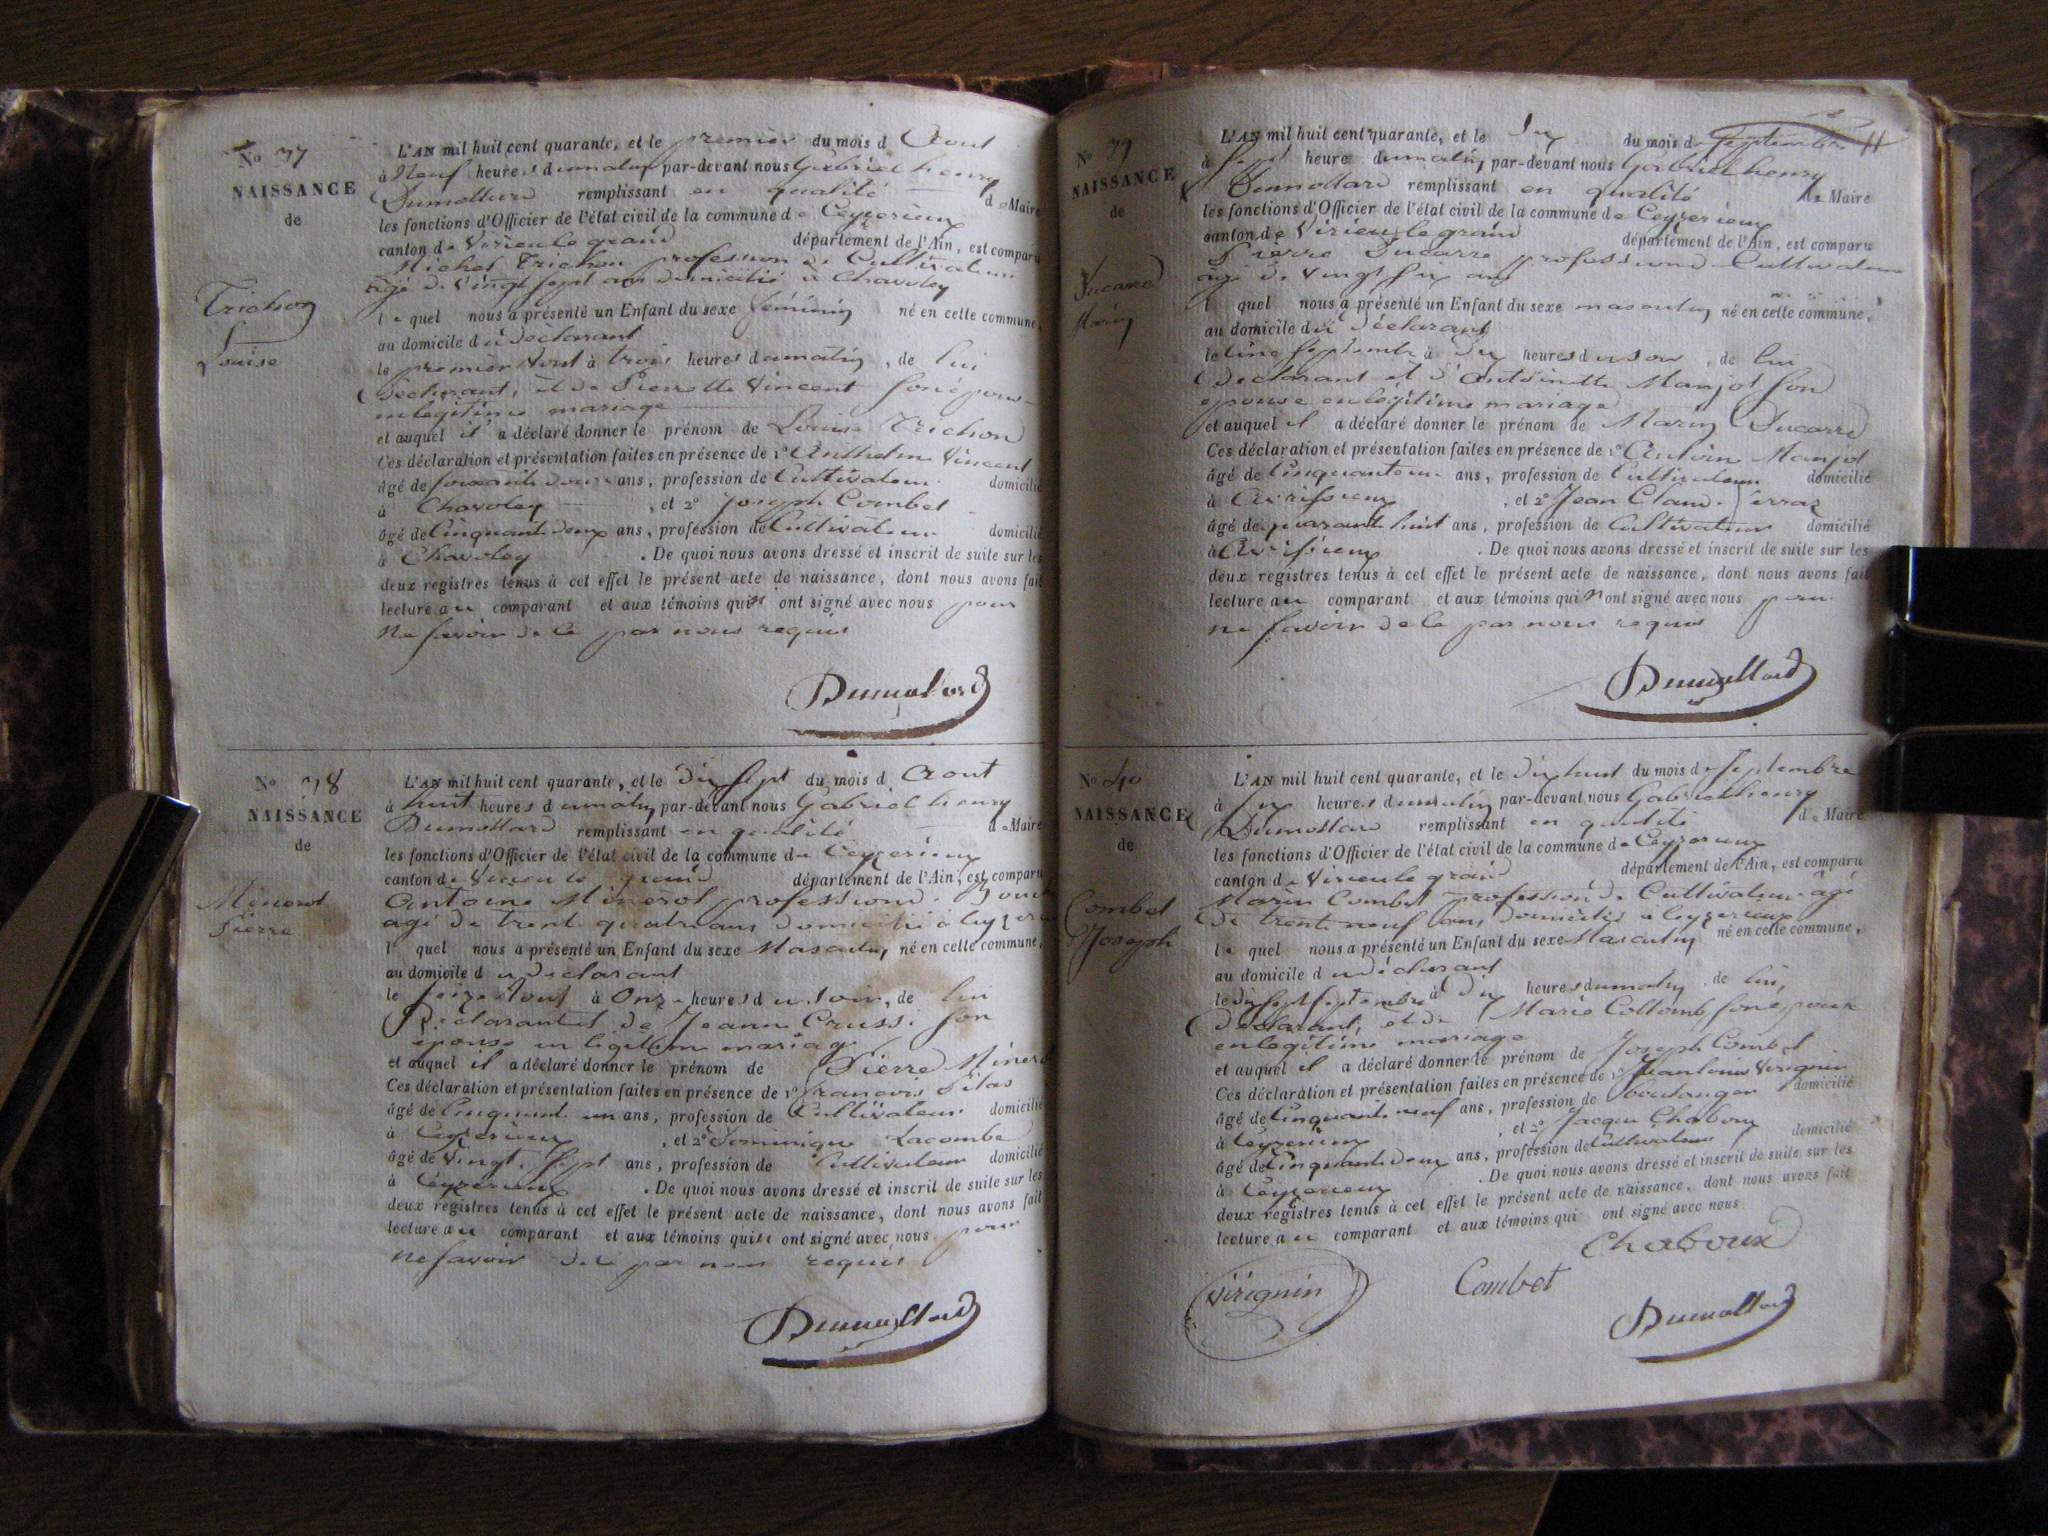 No 37
NAISSANCE
de
Trichon
Louise
L'AN mil huit cent quarante, et le premier du mois d Aout
à Neuf heures du matin par-devant nous Gabriel henry
Dumollard remplissant en qualité de Maire
les fonctions d'Officier de l'état civil de la commune de Ceyzerieux
canton de Virieu le grand département de l'Ain, est comparu
Michel Trichon profession de Cultivateur
âgé de Vingt sept ans domicilié à Chavoley
le quel nous a présenté un Enfant du sexe féminin né en cette commune,
au domicile du Déclarant
le premier Aout à trois heures du matin, de lui
Déclarant, et de Pierrette Vincent son épouse
en legitime mariage
et auquel il a déclaré donner le prénom de Louise Trichon
Ces déclaration et présentation faites en présence de 1º Anthelme Vincent
âgé de soixante douze ans, profession de Cultivateur domicilié
à Chavoley, et 2º Joseph Combet
âgé de Cinquante deux ans, profession de Cultivateur domicilié
à Chavoley. De quoi nous avons dressé et inscrit de suite sur les
deux registres tenus à cet effet le présent acte de naissance, dont nous avons fait
lecture au comparant et aux témoins qui n ont signé avec nous pour
ne savoir de ce par nous requis
Dumollard
No 38
NAISSANCE
de
Minerot
Pierre
L'AN mil huit cent quarante, et le Dix sept du mois d Aout
à huit heures du matin par-devant nous Gabriel henry
Dumollard remplissant en qualité de Maire
les fonctions d'Officier de l'état civil de la commune de Ceyzerieux
canton de Virieu le grand département de l'Ain, est comparu
Antoine Minerot profession de
agé de trente quatre ans domicilié à Ceyzerieux
l quel nous a présenté un Enfant du sexe Masculin né en cette commune,
au domicile du Déclarant
le seize Aout à Onze heures du soir, de lui
Déclarant et de Jeanne Crussi son
épouse en legitime mariage
et auquel il a déclaré donner le prénom de Pierre Minerot
Ces déclaration et présentation faites en présence de 1º francois Pilas
âgé de Cinquante un ans, profession de Cultivateur domicilié
à Ceyzerieux, et 2º Dominique Lacombe
âgé de Vingt sept ans, profession de Cultivateur domicilié
à Ceyzerieux. De quoi nous avons dressé et inscrit de suite sur les
deux registres tenus à cet effet le présent acte de naissance, dont nous avons fait
lecture au comparant et aux témoins qui n ont signé avec nous pour
ne savoir de ce par nous requis
Dumollard
11
No 39
NAISSANCE
de
Ducarre
Marin
L'AN mil huit cent quarante, et le Six du mois de Septembre
à sept heure du matin par-devant nous Gabriel henry
Dumollard remplissant en qualité de Maire
les fonctions d'Officier de l'état civil de la commune de Ceyzerieux
canton de Virieu le grand département de l'Ain, est comparu
Pierre Ducarre profession de Cultivateur
âgé de Vingt six ans
l quel nous a présenté un Enfant du sexe masculin né en cette commune,
au domicile du Déclarant
le Cinq Septembre à Dix heures du soir, de lui
Déclarant et d'Antoinette Manjot son
epouse en légitime mariage
et auquel il a déclaré donner le prénom de Marin Ducarre
Ces déclaration et présentation faites en présence de 1º Antoine Manjot
âgé de Cinquante un ans, profession de Cultivateur domicilié
à Avrissieux, et 2º Jean Claude Perraz
âgé de quarante huit ans, profession de Cultivateur domicilié
à Avrissieux. De quoi nous avons dressé et inscrit de suite sur les
deux registres tenus à cet effet le présent acte de naissance, dont nous avons fait
lecture au comparant et aux témoins qui n ont signé avec nous pour
ne savoir de ce par nous requis
Dumollard
No 40
NAISSANCE
de
Combet
Joseph
L'AN mil huit cent quarante, et le Dix huit du mois de Septembre
à Six heures du matin par-devant nous Gabriel henry
Dumollard remplissant en qualité de Maire
les fonctions d'Officier de l'état civil de la commune de Ceyzerieux
canton de Virieu le grand département de l'Ain, est comparu
Marin Combet profession de Cultivateur âgé
de trente neuf ans, domicilié à Ceyzerieux
le quel nous a présenté un Enfant du sexe Masculin né en cette commune,
au domicile du Déclarant
le Dix sept Septembre à Dix heures du matin, de lui,
Déclarant, et de Marie Collomb son épouse
en legitime mariage
et auquel il a déclaré donner le prénom de Joseph Combet
Ces déclaration et présentation faites en présence de 1º Jean Louis Virignin
âgé de Cinquante neuf ans, profession de boulanger domicilié
à Ceyzerieux, et 2º Jacque Chaboux
âgé de Cinquante deux ans, profession de Cultivateur domicilié
à Ceyzerieux. De quoi nous avons dressé et inscrit de suite sur les
deux registres tenus à cet effet le présent acte de naissance, dont nous avons fait
lecture au comparant et aux témoins qui ont signé avec nous
Chaboux
Virignin Combet
Dumollard